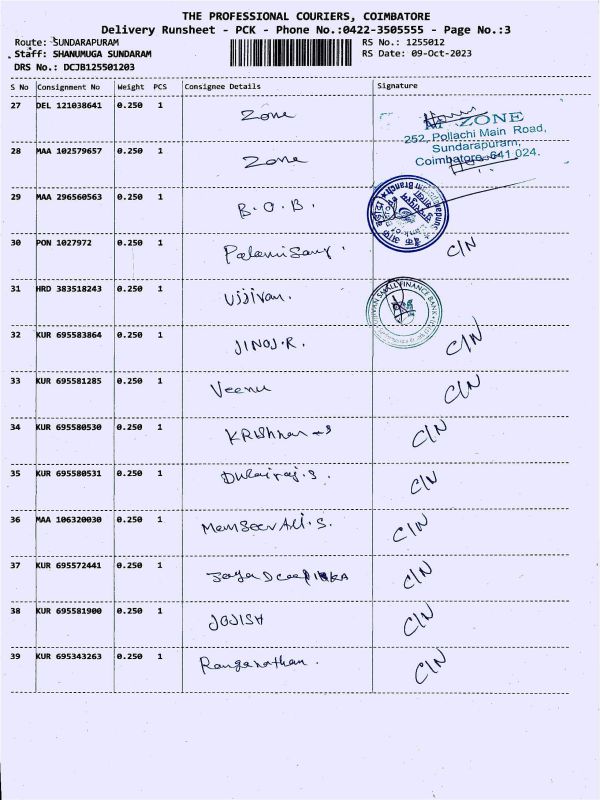 THE PROFESSIONAL COURIERS, COIMBATORE
Delivery Runsheet - PCK - Phone No.:0422-3505555 - Page No.:3
Route: SUNDARAPURAM RS No.: 1255012
Staff: SHANUMUGA SUNDARAM RS Date: 09-Oct-2023
DRS No.: DCJB125501203
S No Consignment No Weight PCS Consignee Details Signature
27 DEL 121038641 0.250 1 Zone
ZONE
252, Pollachi Main Road,
Sundarapuram,
Coimbatore-641 024.
28 MAA 102579657 0.250 1 Zone
29 MAA 296560563 0.250 1 B.O.B.
30 PON 1027972 0.250 1 C/N
31 HRD 383518243 0.250 1 Ujjivan.
UJJIVAN SMALL FINANCE BANK
32 KUR 695583864 0.250 1 JINOJ.R. C/N
33 KUR 695581285 0.250 1 Veenu C/N
34 KUR 695580530 0.250 1 C/N
35 KUR 695580531 0.250 1 Dulairaj.S. C/N
36 MAA 106320030 0.250 1 C/N
37 KUR 695572441 0.250 1 C/N
38 KUR 695581900 0.250 1 JOJISH C/N
39 KUR 695343263 0.250 1 Ranganathan. C/N